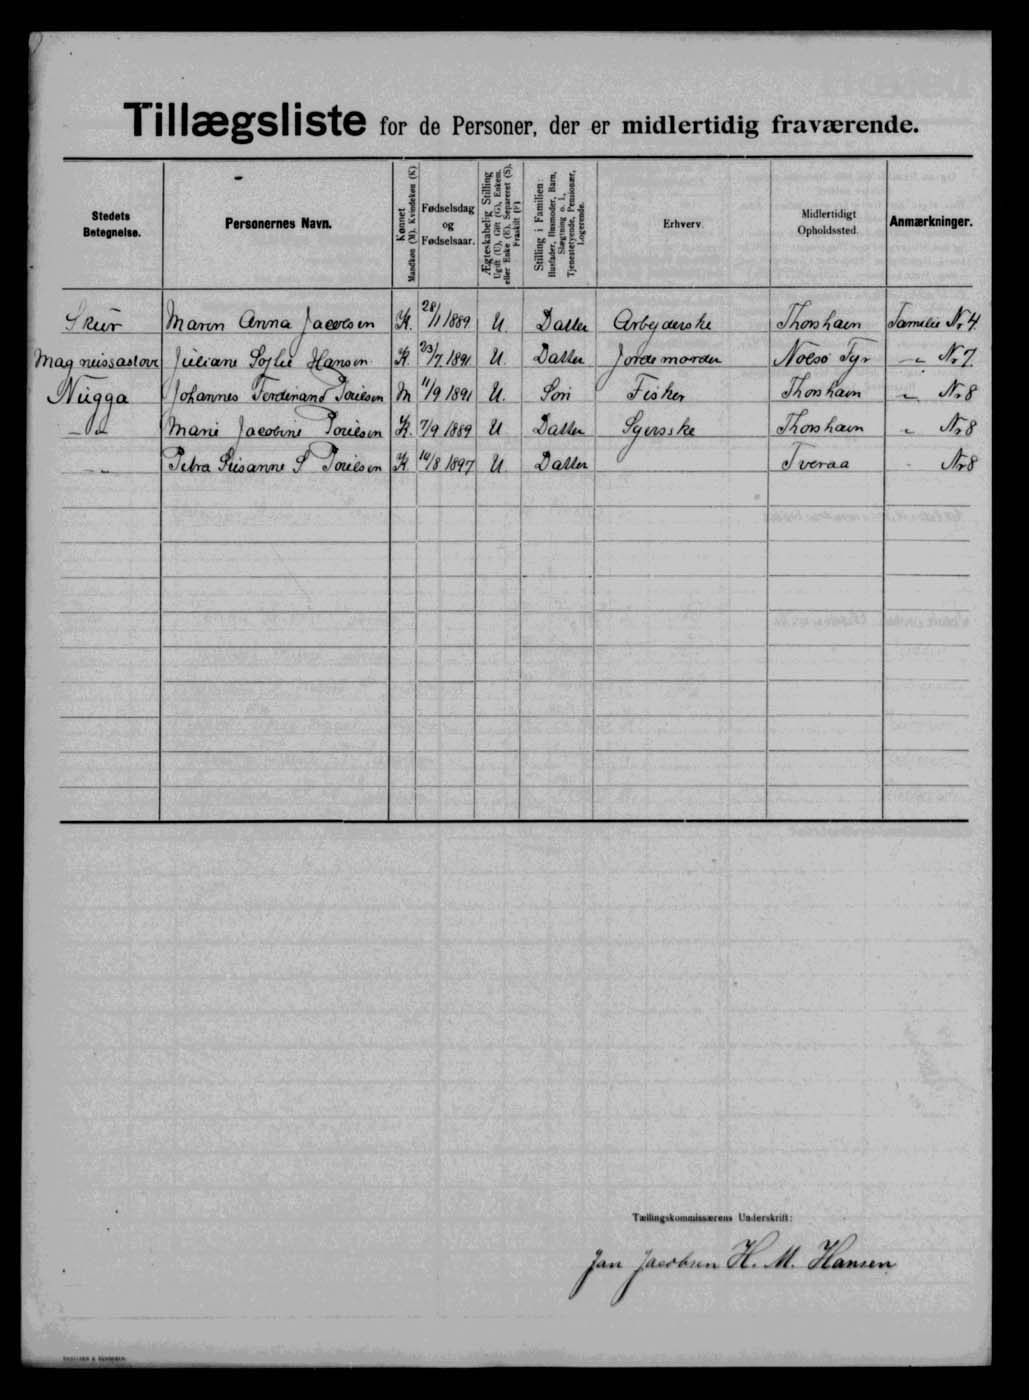 Tillægsliste for de Personer, der er midlertidig fraværende.
Stedets Betegnelse.
Personernes Navn.
Kønnet
Mandkøn (M). Kvindekøn (K)
Fødselsdag og Fødselsaar.
Ægteskabelig Stilling
Ugift (U), Gift (G), Enkem. eller Enke (E), Separeret (S), Fraskilt (F)
Stilling i Familien:
Husfader, Husmoder, Barn, Slægtning o. l., Tjenestetyende, Pensionær, Logerende.
Erhverv.
Midlertidigt Opholdssted.
Anmærkninger.
Skur Maren Anna Jacobsen K. 28/1 1889 U. Datter Arbejderske Thorshavn Familie Nr 4
Magneussastove Juliane Sofie Hansen K. 23/7 1891 U. Datter Jordemoder Nolsö Fyr -"- Nr 7.
Nugga Johannes Ferdinand Poulsen M 11/9 1891 U. Sön Fisker Thorshavn " Nr 8
-"- Marie Jacobine Poulsen K. 7/9 1889 U Datter Syerske Thorshavn " Nr 8
-"- Petra Susanne S Poulsen K 14/8 1897 U. Datter Tveraa " Nr 8
Tællingskommissærens Underskrift:
Jan Jacobsen H. M. Hansen